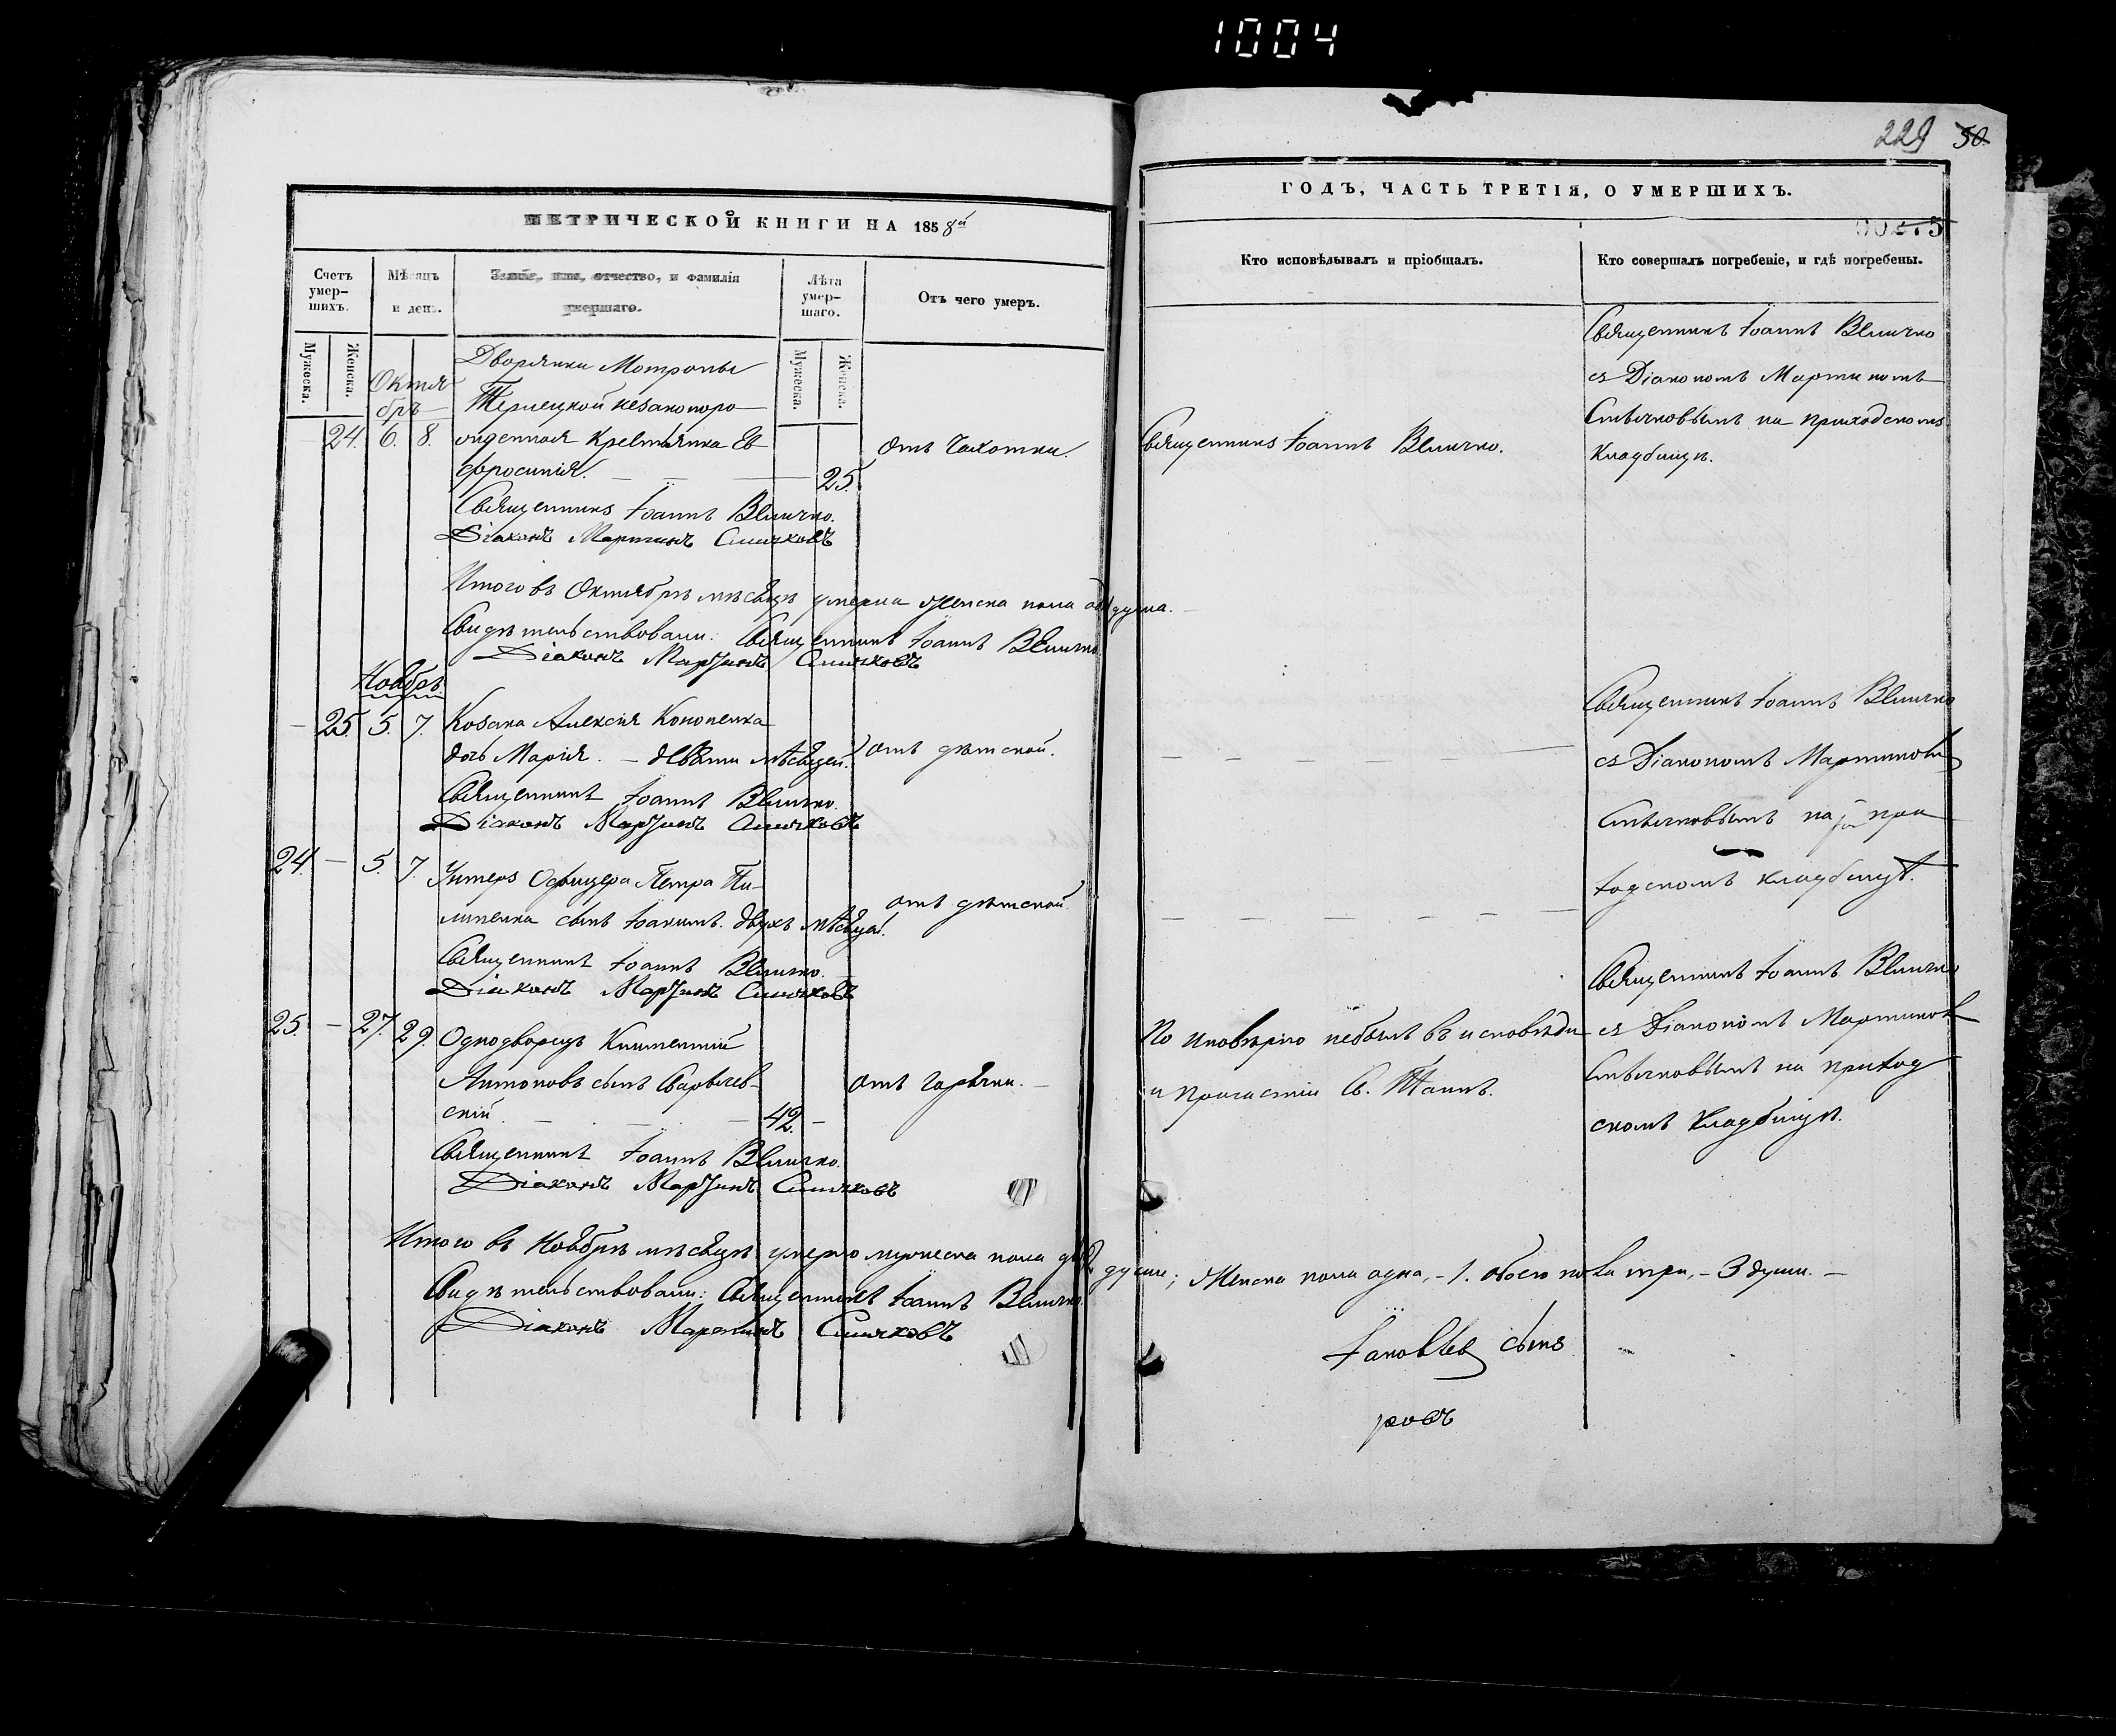 1004
229 50
МЕТРИЧЕСКОЙ КНИГИ НА 1858й
ГОДЪ, ЧАСТЬ ТРЕТІЯ, О УМЕРШИХЪ.
Счетъ умер-
шихъ.
Мѣсяцъ
и день.
Званіе, имя, отчество, и фамилія
умершаго.
Лѣта
умер-
шаго.
Отъ чего умеръ.
Кто исповѣдывалъ и пріобщалъ.
Кто совершалъ погребеніе, и гдѣ погребены.
Мужеска.
Женска.
Мужеска.
Женска.
Октя
брь
24. 6. 8.
Дворянки Мотроны
Терлецкой незаконоро
жденная крестьянка Ев
фросинія. 25.
отъ чахотки.
Священникъ Іоаннъ Величко.
Священникъ Іоаннъ Величко
съ Діакономъ Мартиномъ
на приходскомъ
кладбищѣ.
Священникъ Іоаннъ Величко.
Діаконъ Мартинъ
Итого въ Октябрѣ мѣсяцѣ умерла женска пола одна душа.
Свидѣтельствовали: Священникъ Іоаннъ Величко.
Діаконъ Мартинъ
Ноябрь
— 25. 5. 7. Козака Алексія Кононенка
дочь Марія. — девяти мѣсяцей.
отъ дѣтской.
Священникъ Іоаннъ Величко
съ Діакономъ Мартиномъ
на при
ходскомъ кладбищѣ.
Священникъ Іоаннъ Величко.
Діаконъ Мартинъ
24. — 5. 7. Унтеръ Офицера Петра Пи-
липенка сынъ Іоакимъ. двухъ мѣсяца.
отъ дѣтской.
Священникъ Іоаннъ Величко.
Діаконъ Мартинъ
25. — 27. 29. Однодворецъ
Антоновъ сынъ
скій 42. —
отъ горячки. —
По иновѣрію небылъ въ исповѣди
и причастіи Св. Таинъ.
Священникъ Іоаннъ Величко
съ Діакономъ Мартиномъ
на приход
скомъ кладбищѣ.
Священникъ Іоаннъ Величко.
Діаконъ Мартинъ
Итого въ Ноябрѣ мѣсяцѣ умерло мужеска пола двѣ 2 души; женска пола одна, – 1. обоего пола три, – 3 души. —
Свидѣтельствовали: Священникъ Іоаннъ Величко.
Діаконъ Мартинъ
Іаковлев сынъ
ровъ